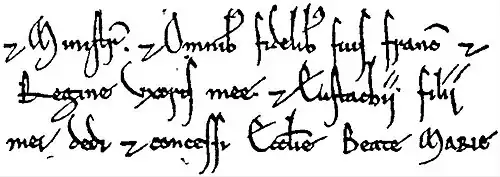 ⁊ Ministr̃. ⁊ Omnib; fidelib; suis franc̃ ⁊
Regine Uxoris mee ⁊ Eustachii filii
mei dedi ⁊ concessi Ecclie Beate Marie